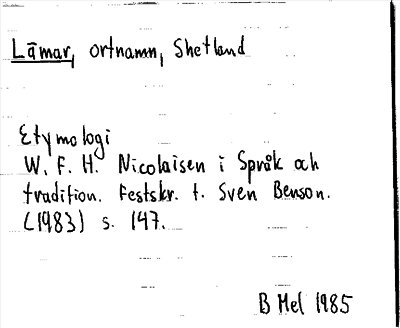 Lāmar, ortnamn, Shetland
Etymologi
W. F. H. Nicolaisen i Språk och
tradition. Festskr. t. Sven Benson.
(1983) s. 147.
B Mel 1985